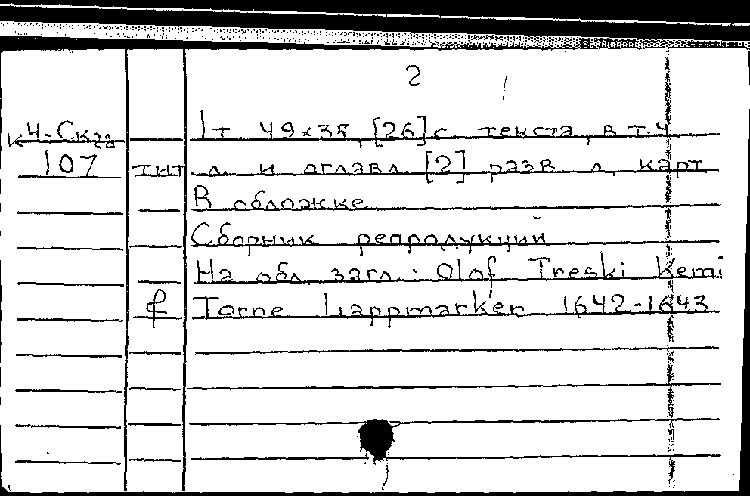 2
К 4-Ск28 1 т. 49x35, [26] с. текста, в т.ч.
107 тит. л. и оглавл. [2] разв. л. карт
В обложке
Сборник репродукций
На обл. загл.: Olof Treski Kemi
Torne Lappmarker 1642-1643